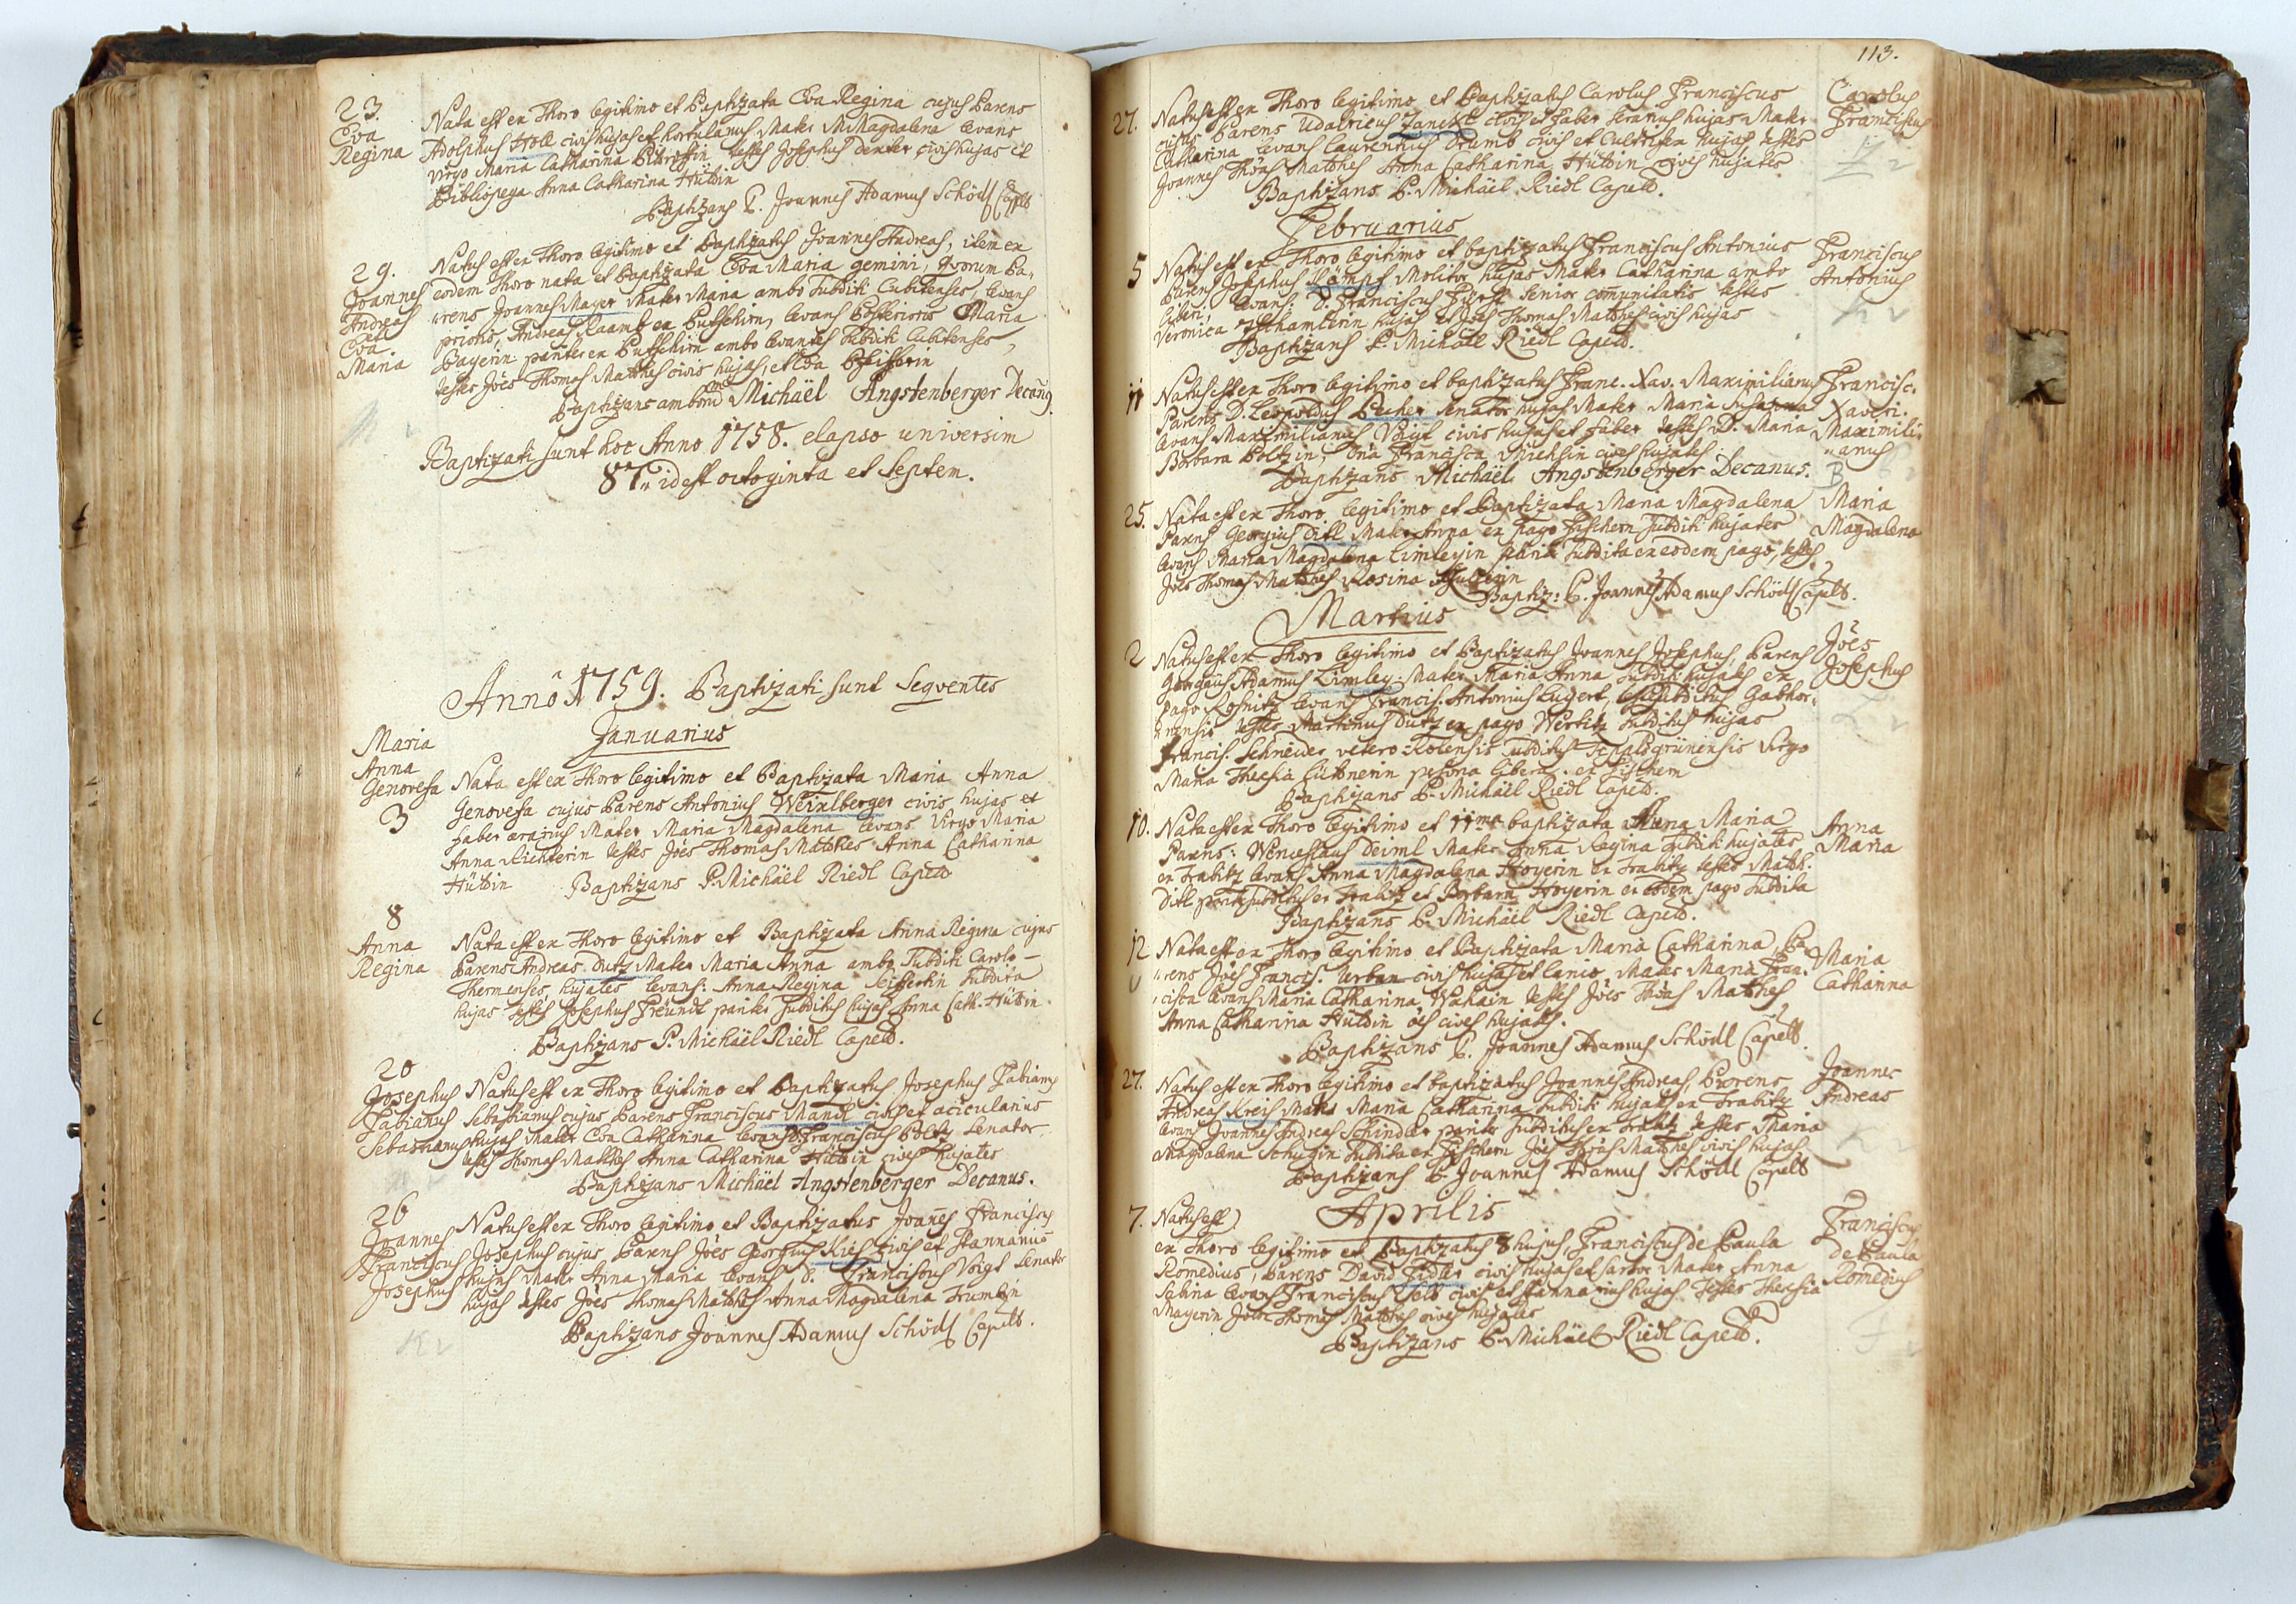 23.
Eva
Regina
Nata est ex Thoro legitimo et Baptizata Eva Regina cujus Parens
Adolphus Höll civis hujas et hortulanus Mater M: Magdalena levans
Virgo Maria Catharina testes Josephus dexter civis hujas et
Bibliopega Anna Catharina Hüttin
Baptizans P. Joannes Adamus Schödl Capell.
29.
Joannes
Andreas
et
Eva
Maria
Natus est ex Thoro legitimo et Baptizatus Joannes Andreas, item ex
eodem Thoro nata et Baptizata Eva Maria gemini, quorum Pa-
rens Joannes Mayer Mater Maria ambo subditi Cubitenses, levans
prioris, Andreas Raamb ex Putschirn, levans Posterioris Maria
Bayerin pariter ex Putschirn ambo levantes subditi Cubitenses,
testes Jöes Thomas Matthes civis hujas, et Eva
Baptizans ambo Michäel Angstenberger Decang
Baptizati sunt hoc Anno 1758. elapso universim
87 idest octoginta et septem.
Annô 1759. Baptizati sunt Seqventes
Januarius
Maria
Anna
Genovefa
3
Nata est ex Thoro legitimo et Baptizata Maria Anna
Genovefa cujus Parens Antonius Weixlberger civis hujas et
faber ærarius Mater Maria Magdalena levans Virgo Maria
Anna Richterin testes Jöes Thomas Matthes Anna Catharina
Hüttin Baptizans P. Michäel Riedl Capell
8
Anna
Regina
Nata est ex Thoro legitimo et Baptizata Anna Regina cujus
Parens Andreas Dutz Mater Maria Anna ambo Subditi Carolo-
Thermenses hujates levans: Anna Regina Seifertin subdita
hujas testes Josephus Freündl pariter subditus hujas Anna Cath. Hüttin
Baptizans P. Michäel Riedl Capell.
20
Josephus
Fabianus
Sebastianus
Natus est ex Thoro legitimo et Baptizatus Josephus Fabianus
Sebastianus cujus Parens Franciscus Mandl civis et acicularius
hujas Mater Eva Catharina levans D. Franciscus Poltz Senator,
testes Thomas Matthes Anna Catharina Hüttin cives hujates
Baptizans Michäel Angstenberger Decanus.
26
Joannes
Franciscus
Josephus
Natus est ex Thoro legitimo et Baptizatus Joañes Franciscus
Josephus cujus Parens Jöes Georgius Kies civis et stannarius
hujus Mater Anna Maria levans D. Franciscus Voigt Senator
hujas testes Jöes Thomas Matthes Anna Magdalena Trumbin
Baptizans Joannes Adamus Schödl Capell.
113.
27.
Natus est ex Thoro legitimo et Baptizatus Carolus Franciscus
cujus Parens Udalricus civis et faber serarius hujas Mater
Catharina levans Laurentius Drumb civis et Cultrifex hujas testes
Joannes Thöas Matthes Anna Catharina Hüttin cives hujates
Baptizans P. Michäel Riedl Capell.
Carolus
Franciscus
Februarius
5
Natus est ex Thoro legitimo et baptizatus Franciscus Antonius
Parens Josephus Kämpf Molitor hujas Mater Catharina ambo
liberi, levans: D. Franciscus Fürst Senior comunitatis testes
Veronica hujas et Jöes Thomas Matthes civis hujas
Baptizans P. Michäel Riedl Capell.
Franciscus
Antonius
11
Natus est ex Thoro legitimo et baptizatus Franc. Xav. Maximilianus
Parens D. Leopoldus Becher Senator hujas Mater Maria Susanna
levans Maximilianus Voigt civis hujas et faber testes D. Maria
Barbara Poltzin, Dna Francisca Miehlin cives hujates
Baptizans Michäel Angstenberger Decanus.
Francisc.
Xaveri.
Maximili-
anus
B
25.
Nata est ex Thoro legitimo et Baptizata Maria Magdalena
Parens Georgius Ditl Mater Anna ex pago Fischern subditi hujates
levans Maria Magdalena Limleyin pariter subdita ex eodem pago, testes
Jöes Thomas Matthes Rosina
Baptiz: P. Joannes Adamus Schödl Capell.
Maria
Magdalena
Martius
2
Natus est ex Thoro legitimo et Baptizatus Joannes Josephus, Parens
Georgius Adamus Limley: Mater Maria Anna subditi hujates ex
pago Rosnitz levans Francis: Antonius Lugert, subditus Gabhor-
nensis testes Martinus Dutz ex pago Wertitz subditus hujas
Francis. Schneider vetero-Rolensis subditus Tepaldgrünensis Virgo
Maria Theresia Lüttnerin persona libera ex Fischern
Baptizans P. Michäel Riedl Capell.
Jöes
Josephus
10.
Nata est ex Thoro legitimo et 11ma baptizata Anna Maria
Parens: Wenceslaus Deiml Mater Anna Regina subditi hujates
ex Trabitz levans Anna Magdalena Hoyerin ex Trabitz testes Matth.
Ditl pariter subditus ex Trabitz et Barbara Hoyerin ex eodem pago subdita
Baptizans P. Michäel Riedl Capell.
Anna
Maria
12
Nata est ex Thoro legitimo et Baptizata Maria Catharina, Pa-
rens Jöes Francis. Urban civis hujas et lanio, Mater Maria Fran-
cisca levans Maria Catharina Wahain testes Jöes Thöas Matthes
Anna Catharina Hüttin öes cives hujates.
Baptizans P. Joannes Adamus Schödl Capell.
Maria
Catharina
27.
Natus est ex Thoro legitimo et baptizatus Joannes Andreas, Parens
Andreas Kreis Mater Maria Catharina subditi hujates ex Trabitz
levans Joannes Andreas Schindler pariter subditus ex Trabitz testes Maria
Magdalena Schugin subdita ex Fischern Jöes Thöas Matthes civis hujas
Baptizans P. Joannes Adamus Schödl Capell
Joannes
Andreas
Aprilis
7.
Natus est
ex Thoro legitimo et Baptizatus 8 hujus, Franciscus de Paula
Romedius, Parens David Fidler civis hujas et sartor Mater Anna
Sabina levans Franciscus civis et stannarius hujas testes Theresia
Mayerin Jöes Thomas Matthes cives hujates
Baptizans P. Michäel Riedl Capell.
Franciscus
de Paula
Romedius